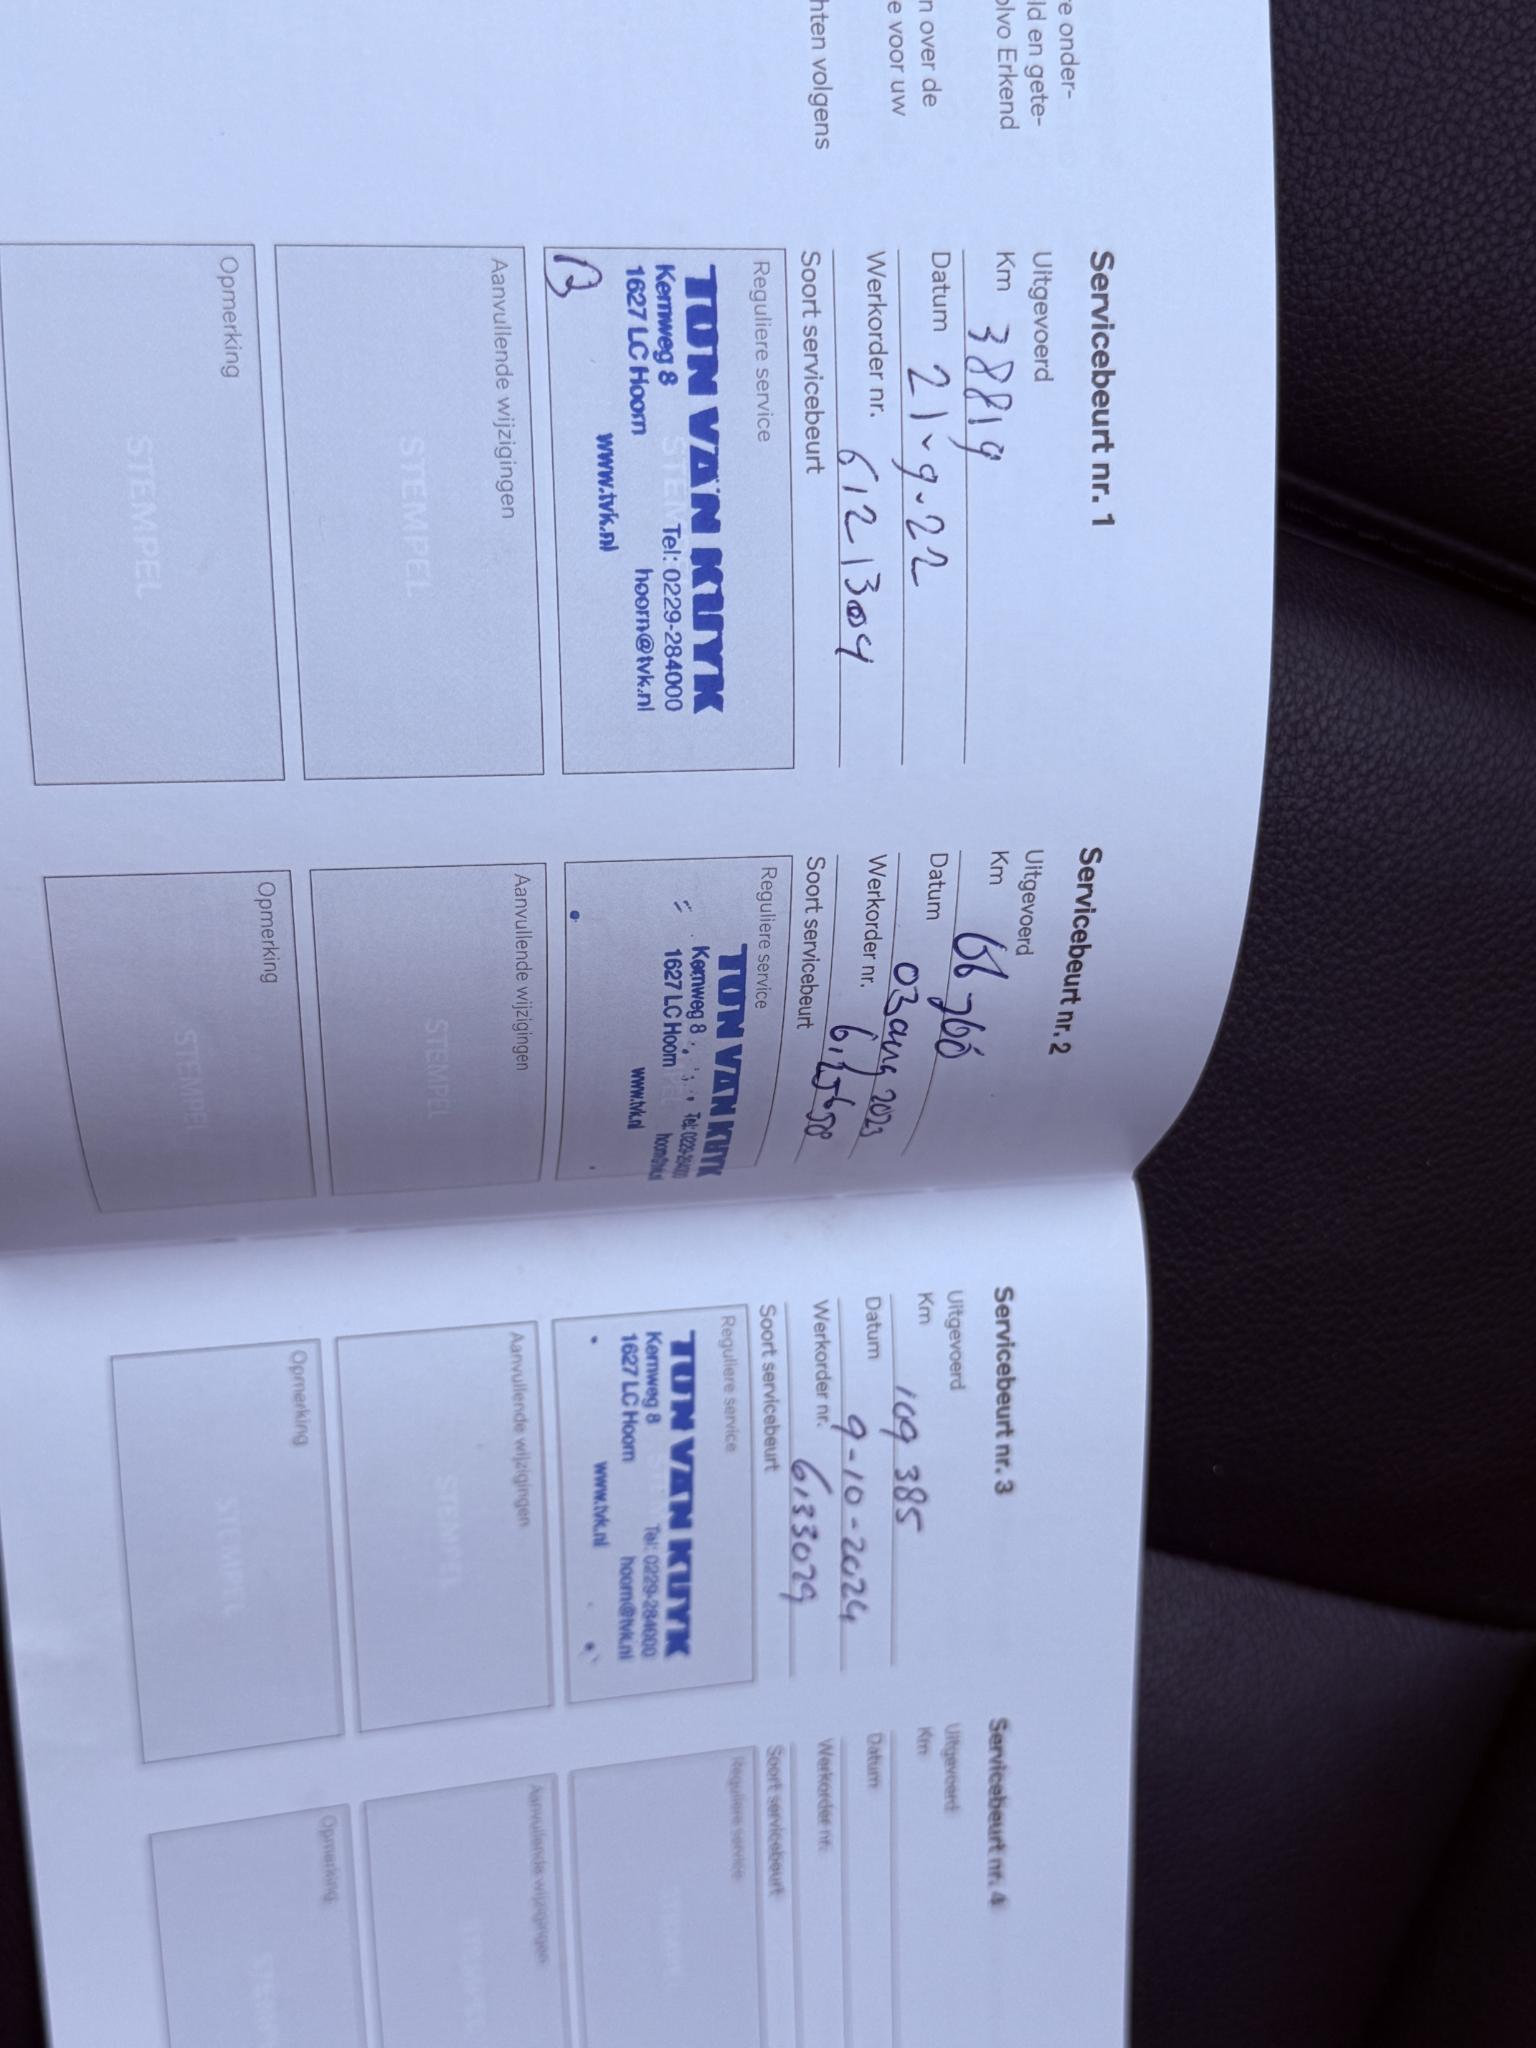 e onder-
ld en gete-
olvo Erkend
n over de
e voor uw
hten volgens
Servicebeurt nr. 1
Uitgevoerd
Km 38819
Datum 21-9-22
Werkorder nr. 6121304
Soort servicebeurt
Reguliere service
TON VAN KUYK
Kernweg 8 Tel: 0229-284000
1627 LC Hoorn hoorn@tvk.nl
www.tvk.nl
STEMPEL
Aanvullende wijzigingen
STEMPEL
Opmerking
STEMPEL
Servicebeurt nr. 2
Uitgevoerd
Km
Datum 03 aug 2023
Werkorder nr.
Soort servicebeurt
Reguliere service
TON VAN KUYK
Kernweg 8 Tel: 0229-284000
1627 LC Hoorn hoorn@tvk.nl
www.tvk.nl
Aanvullende wijzigingen
STEMPEL
Opmerking
STEMPEL
Servicebeurt nr. 3
Uitgevoerd
Km 109 385
Datum 9-10-2024
Werkorder nr. 6133029
Soort servicebeurt
Reguliere service
TON VAN KUYK
Kernweg 8 Tel: 0229-284000
1627 LC Hoorn hoorn@tvk.nl
www.tvk.nl
Aanvullende wijzigingen
STEMPEL
Opmerking
STEMPEL
Servicebeurt nr. 4
Uitgevoerd
Km
Datum
Werkorder nr.
Soort servicebeurt
Reguliere service
Aanvullende wijzigingen
Opmerking